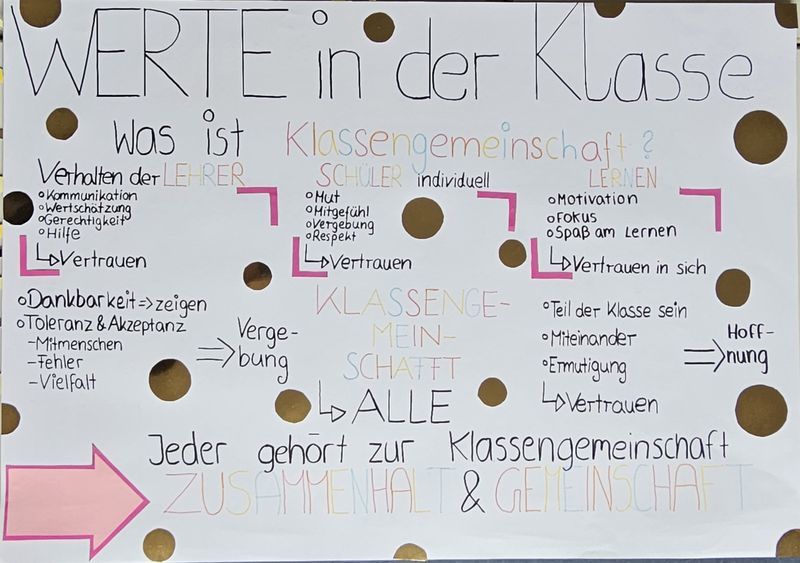 WERTE in der Klasse
Was ist Klassengemeinschaft?
Verhalten der LEHRER
o Kommunikation
o Wertschätzung
o Gerechtigkeit
o Hilfe
↳ Vertrauen
SCHÜLER individuell
o Mut
o Mitgefühl
o Vergebung
o Respekt
↳ Vertrauen
LERNEN
o Motivation
o Fokus
o Spaß am Lernen
↳ Vertrauen in sich
o Dankbarkeit => zeigen
o Toleranz & Akzeptanz
- Mitmenschen
- Fehler
- Vielfalt
=> Verge-
bung
KLASSENGE-
MEIN-
SCHAFFT
↳ ALLE
o Teil der Klasse sein
o Miteinander
o Ermutigung
↳ Vertrauen
=> Hoff-
nung
Jeder gehört zur Klassengemeinschaft
ZUSAMMENHALT & GEMEINSCHAFT